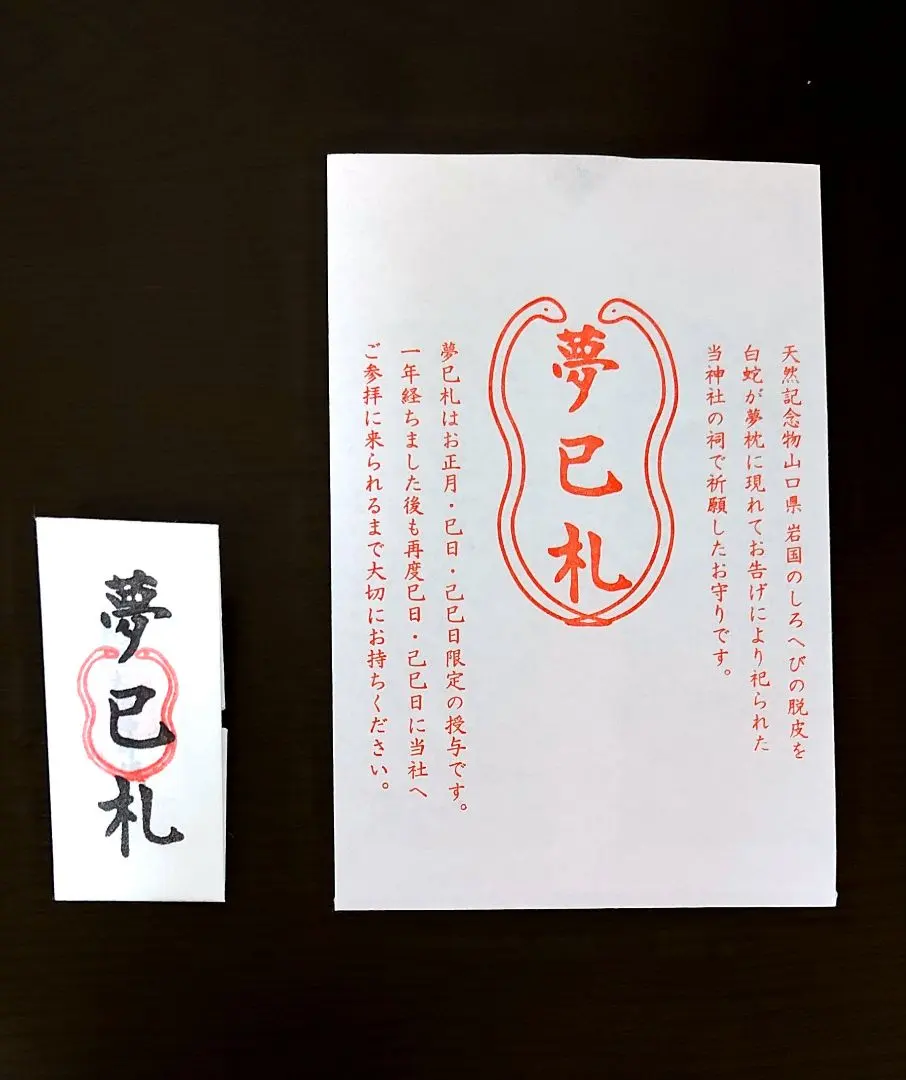 天然記念物山口県岩国のしろへびの脱皮を
白蛇が夢枕に現れてお告げにより祀られた
当神社の祠で祈願したお守りです。
夢巳札
夢巳札はお正月・巳日・己巳日限定の授与です。
一年経ちました後も再度巳日・己巳日に当社へ
ご参拝に来られるまで大切にお持ちください。
夢巳札